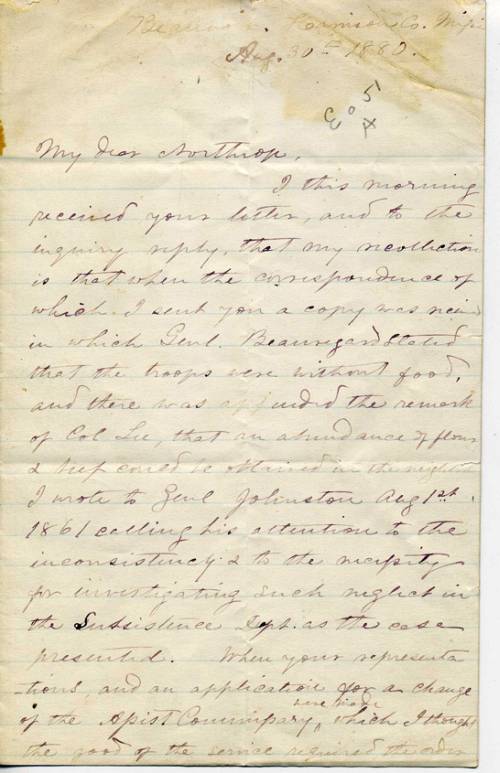 Beauvoir Harrison Co. Mipi
Aug. 30th 1880.
My dear Northrop,
I this morning
received your letter, and to the
inquiry reply, that my recollection
is that when the correspondence of
which I sent you a copy was recd
in which Genl. Beauregard stated
that the troops were without food,
and there was appended the remark
of Col Lee, that an abundance of flour
& beef could be obtained in the neighbd
I wrote to Genl Johnston Aug 1st
1861 calling his attention to the
inconsistency & to the necessity
for investigating such neglect in
the Subsistence Dept. as the case
presented. When your representa
tions, and an application for a change
of the Apist Commipary, were made which I thought
the good of the service required the order